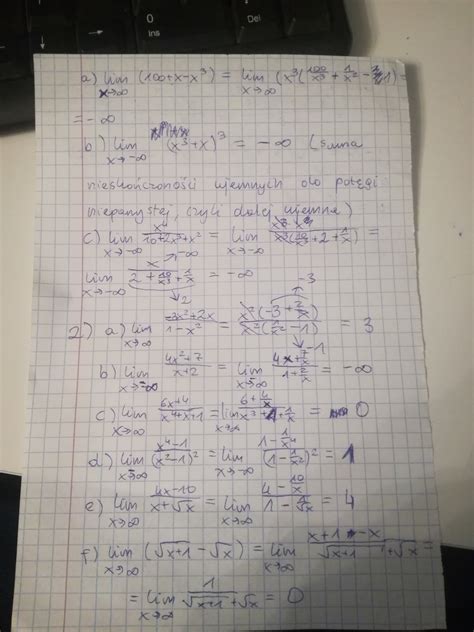 a) lim x→∞ (100+x-x³) = lim x→∞ (x³(100/x³ + 1/x² - 1)) =
= -∞
b) lim x→-∞ (x³+x)³ = -∞ (suma
nieskończoności ujemnych do potęgi
nieparzystej, czyli dalej ujemna)
c) lim x→-∞ x⁴/(10+2x³+x²) = lim x→-∞ x⁴/(x³(10/x³+2+1/x)) =
lim x→-∞ x/(2+10/x³+1/x) = -∞
→-∞
→2
-3
2) a) lim x→∞ (-3x²+2x)/(1-x²) = x²(-3+2/x)/(x²(1/x²-1)) = 3
→-1
b) lim x→-∞ (4x²+7)/(x+2) = lim x→-∞ (4x+7/x)/(1+2/x) = -∞
c) lim x→∞ (6x+4)/(x⁴+x+1) = lim x→∞ (6+4/x)/(x³+1+1/x) = 0
d) lim x→-∞ (x⁴-1)/(x²-1)² = lim x→-∞ (1-1/x⁴)/(1-1/x²)² = 1
e) lim x→∞ (4x-10)/(x+√x) = lim x→∞ (4-10/x)/(1-1/√x) = 4
f) lim x→∞ (√x+1 - √x) = lim x→∞ (x+1-x)/(√x+1+√x) =
= lim x→∞ 1/(√x+1+√x) = 0